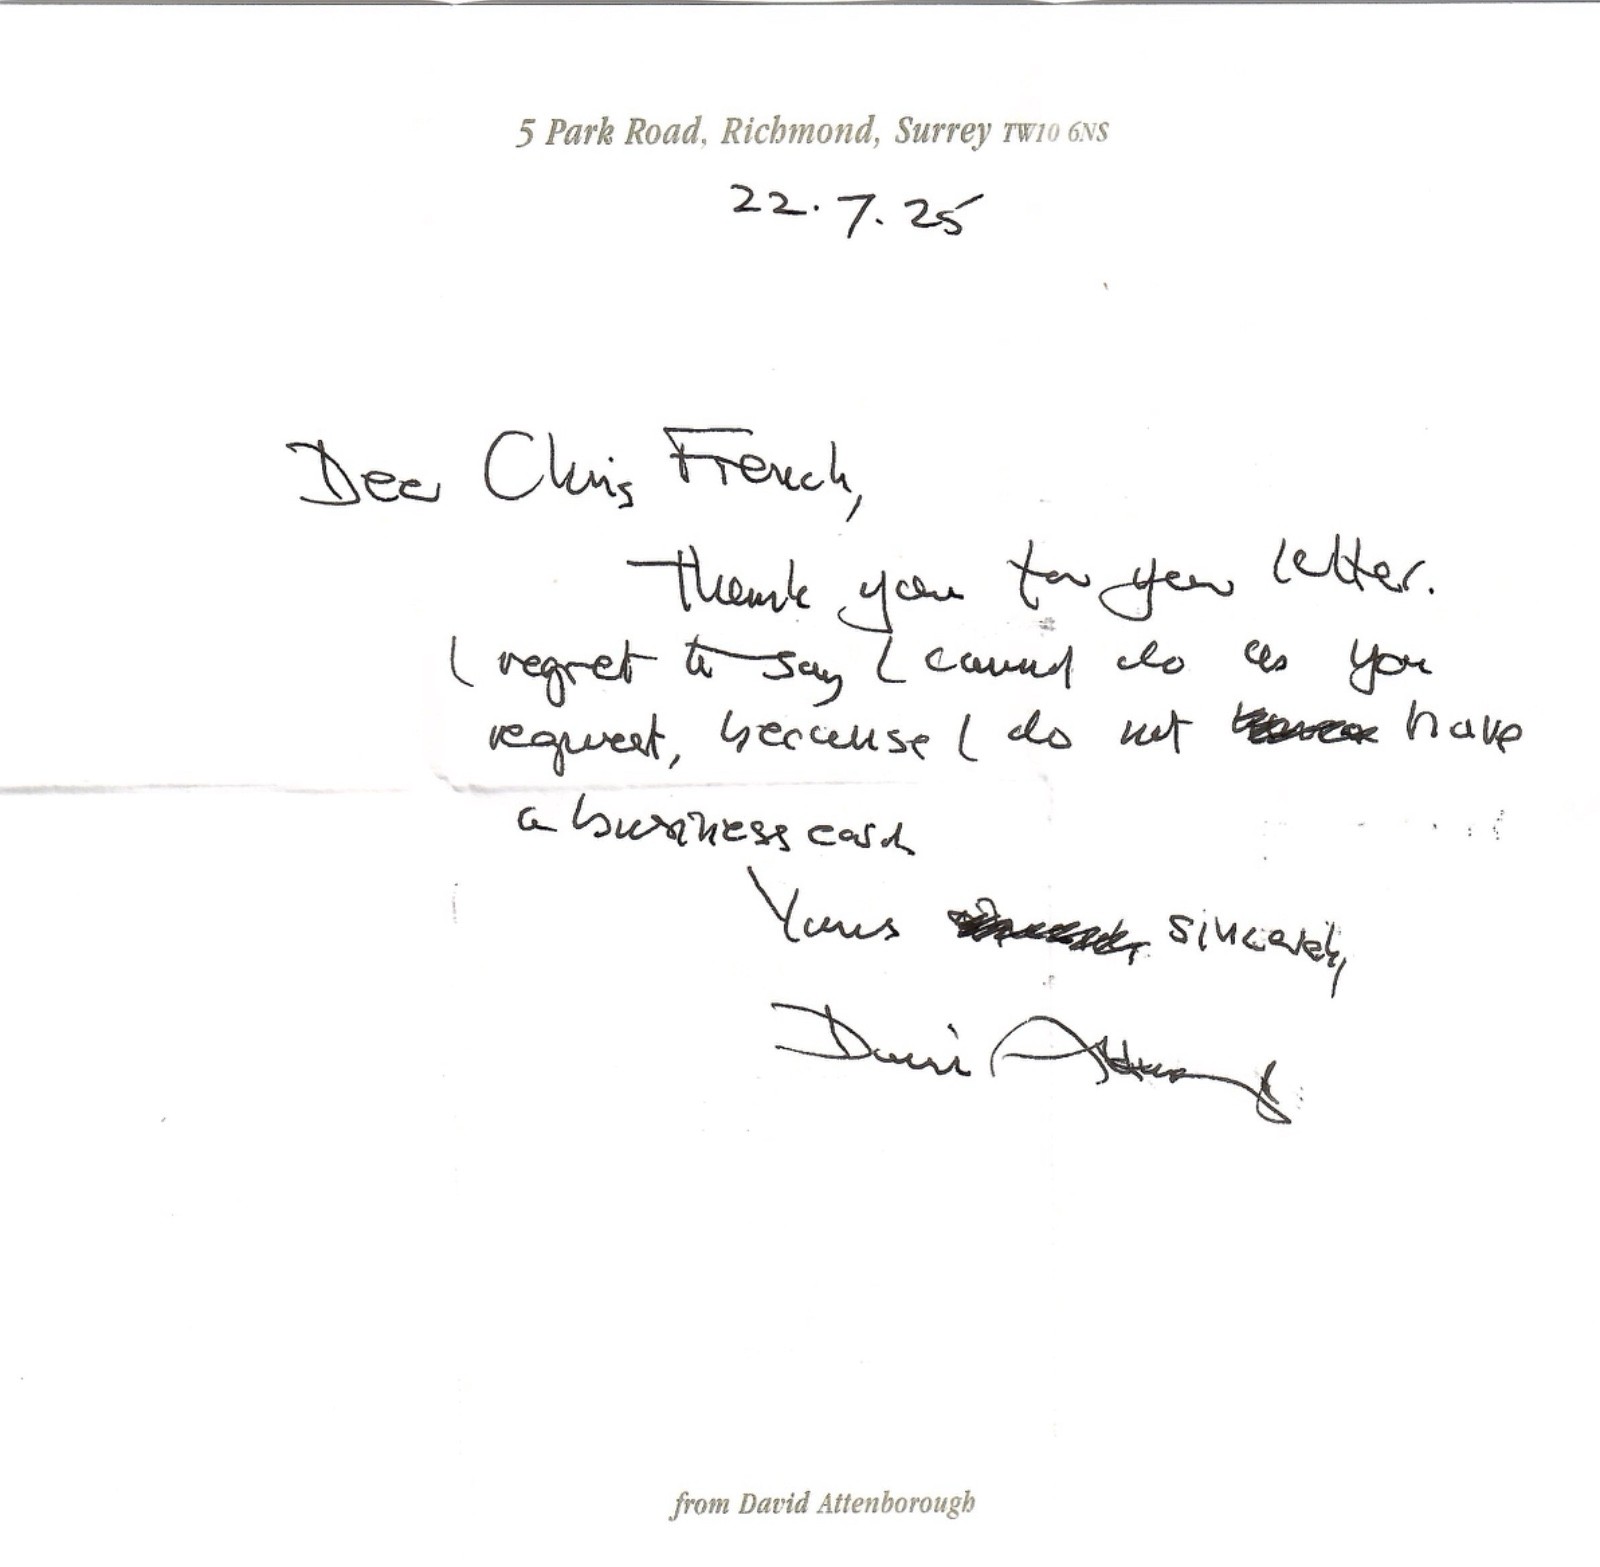 5 Park Road, Richmond, Surrey TW10 6NS
22.7.25
Dear Chris French,
Thank you for your letter.
I regret to say I cannot do as you
request, because I do not have
a business card
Yours sincerely,
David Attenborough
from David Attenborough